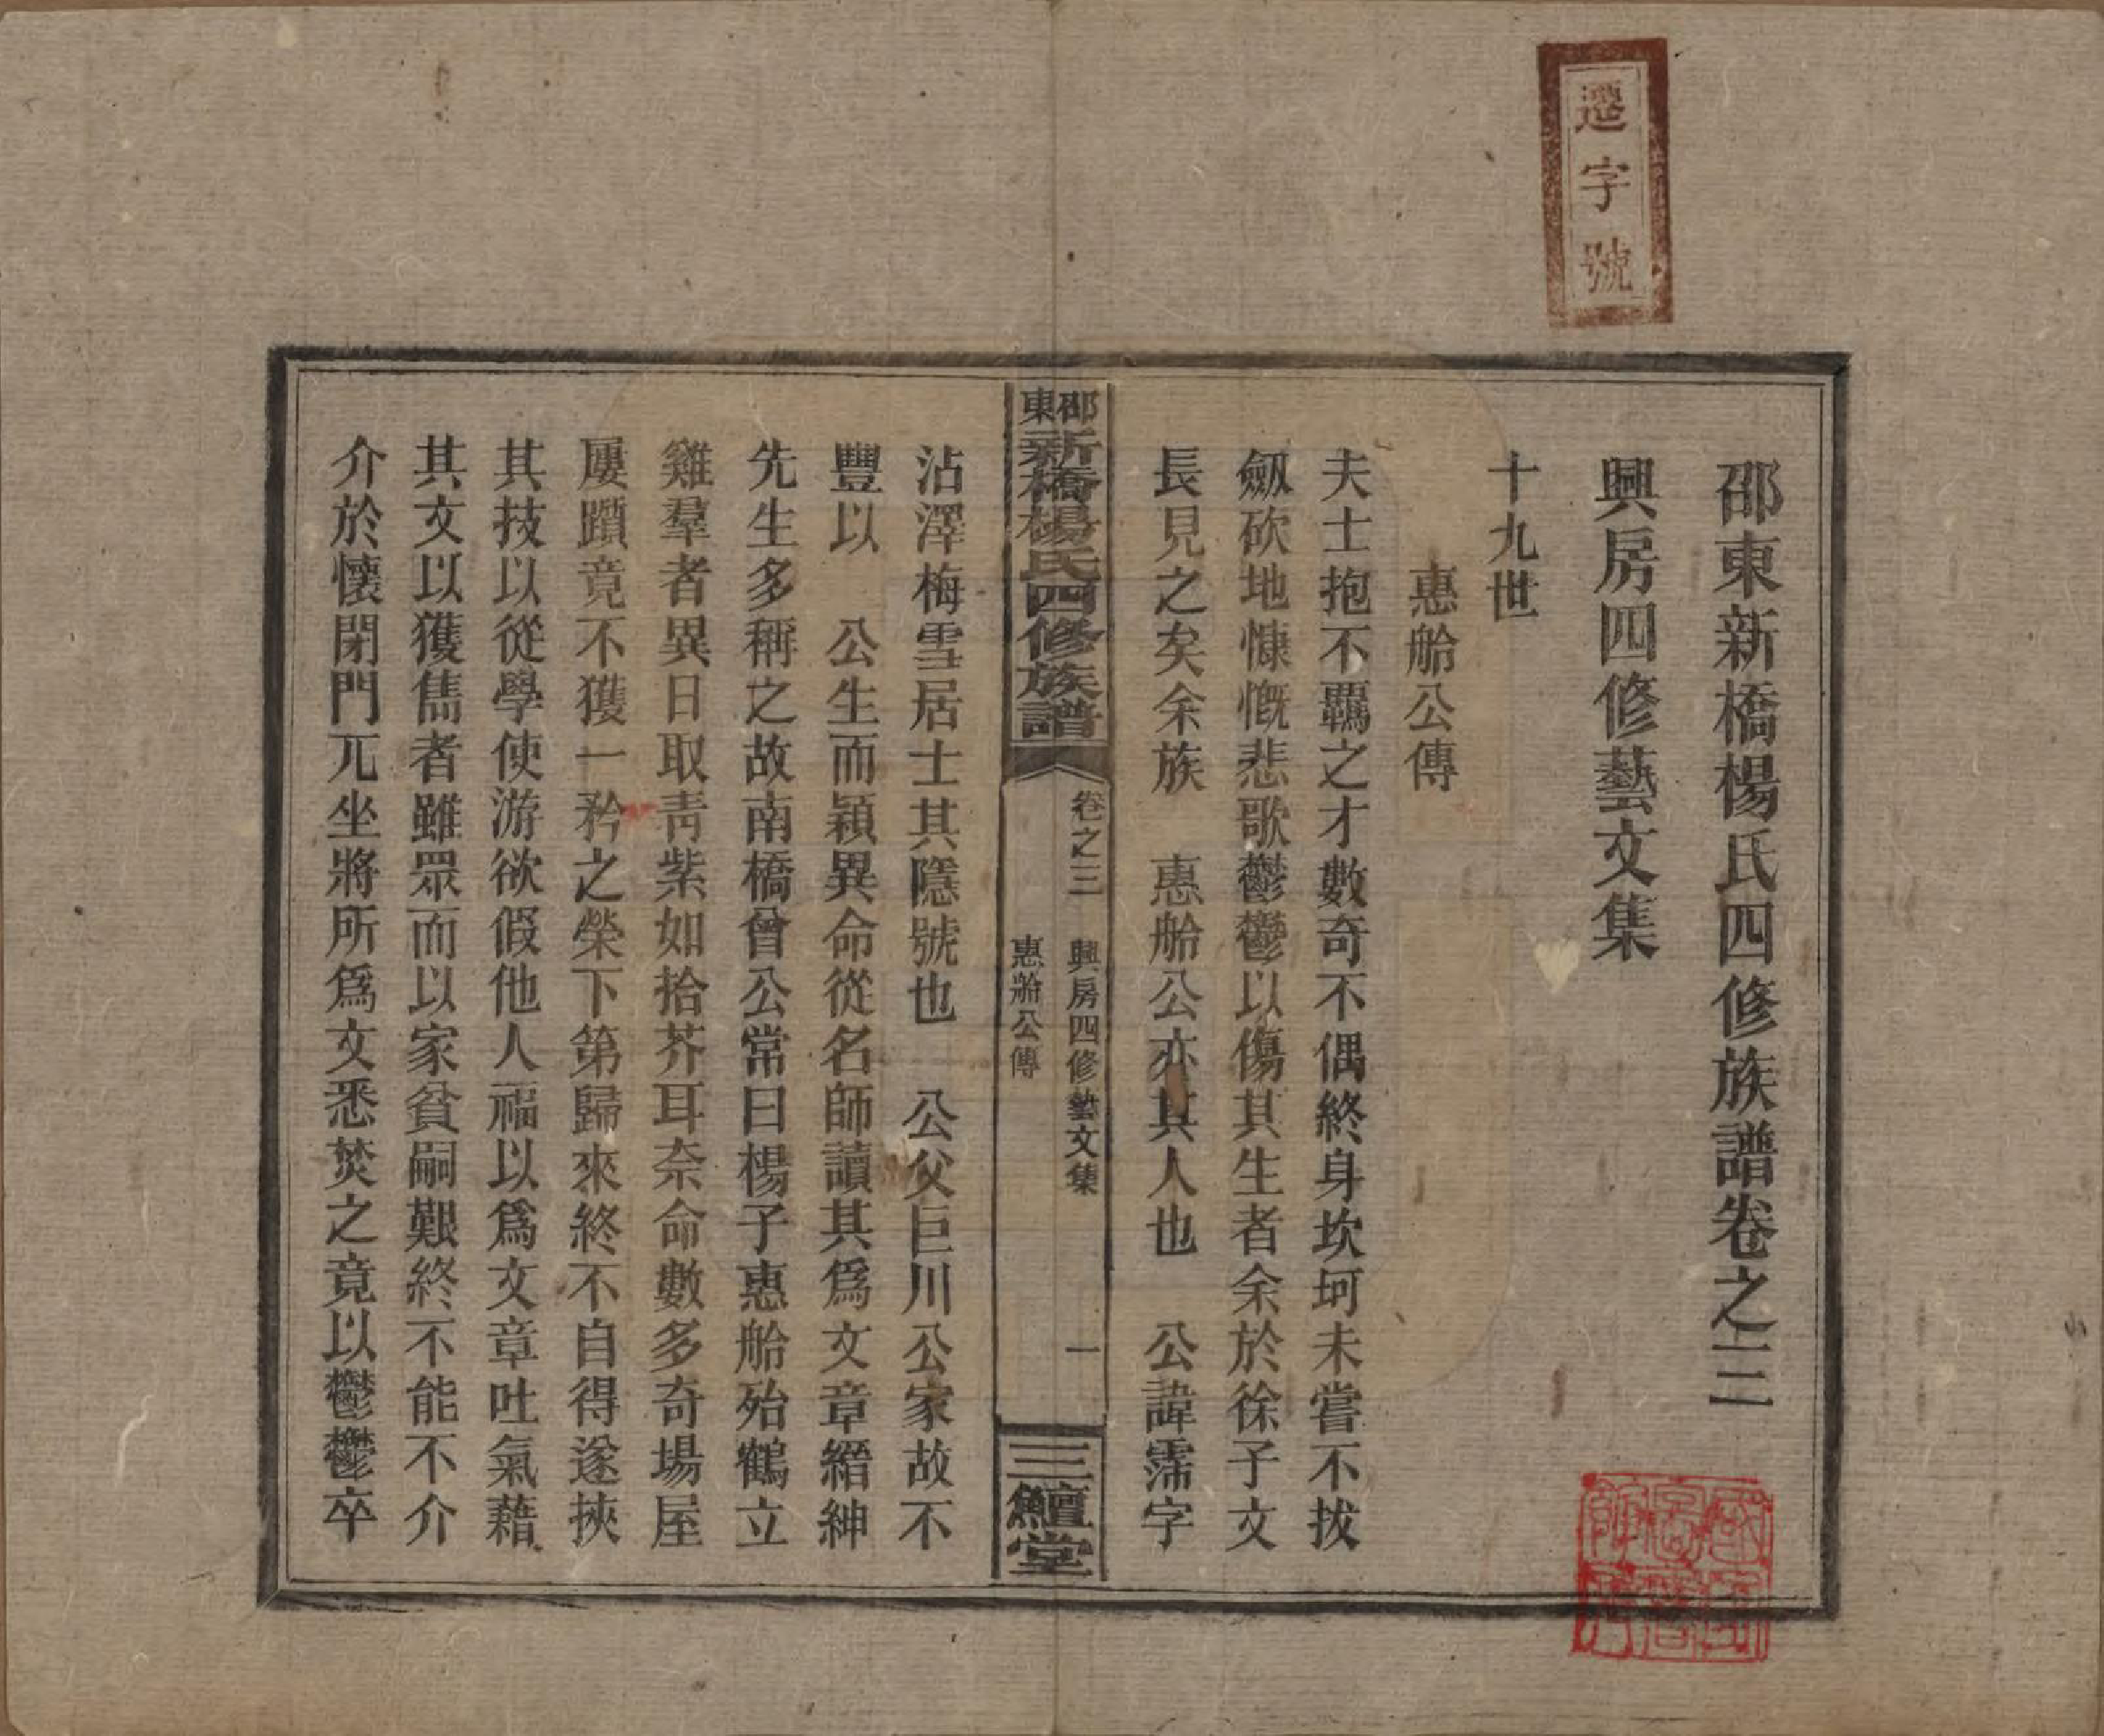 遷字號
邵東新橋楊氏四修族譜卷之三
興房四修藝文集
十九世
惠船公傳
夫士抱不羈之才數奇不偶終身坎坷未嘗不拔
劔砍地慷慨悲歌鬱鬱以傷其生者余於徐子文
長見之矣余族 惠船公亦其人也 公諱霈字
邵東新橋楊氏四修族譜
卷之三 興房四修藝文集 一
惠船公傳
三鱣堂
沾澤梅雪居士其隱號也 公父巨川公家故不
豐以 公生而穎異命從名師讀其爲文章縉紳
先生多稱之故南橋曾公常曰楊子惠船殆鶴立
雞羣者異日取靑紫如拾芥耳奈命數多奇場屋
屢躓竟不獲一矜之榮下第歸來終不自得遂挾
其技以從學使游欲假他人福以爲文章吐氣藉
其文以獲雋者雖眾而以家貧嗣艱終不能不介
介於懷閉門兀坐將所爲文悉焚之竟以鬱鬱卒